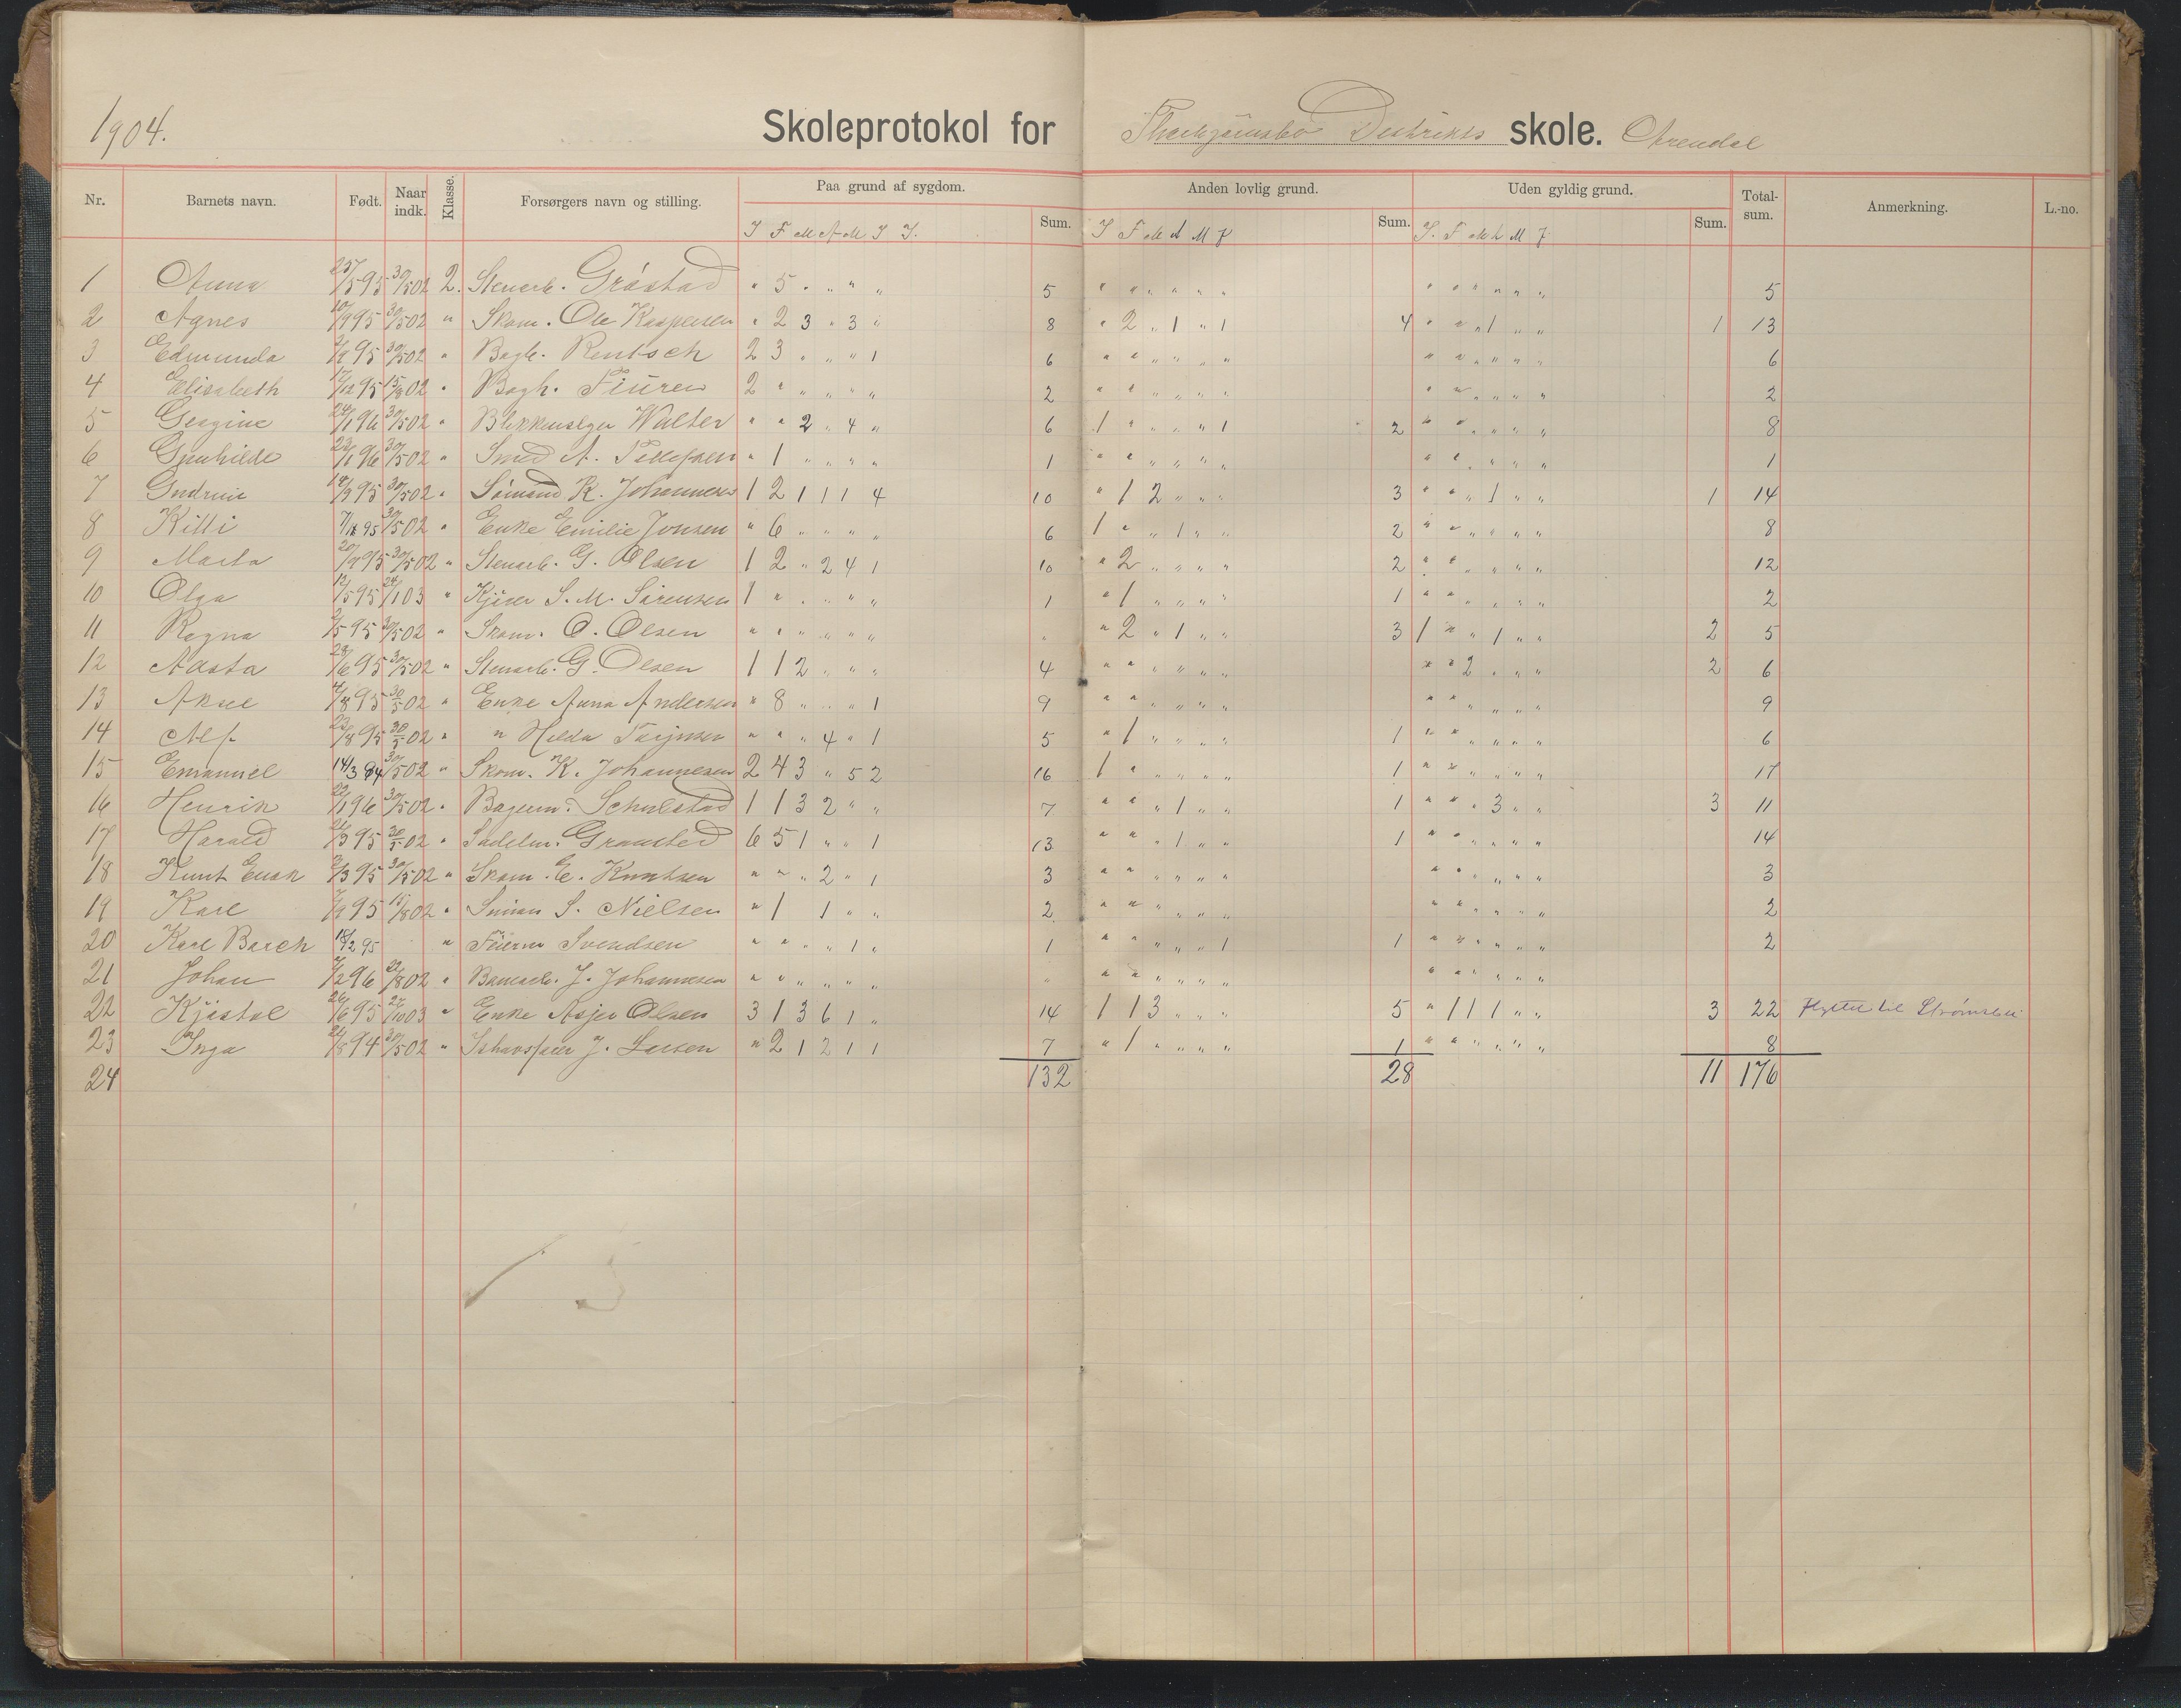 1904. Skoleprotokol for Distrikts skole. Arendal
Nr. Barnets navn. Født. Naar indk. Klasse. Forsørgers navn og stilling. Paa grund af sygdom. Sum. Anden lovlig grund. Sum. Uden gyldig grund. Sum. Total-sum. Anmerkning. L.-no.
J F M A M J J. J F M A M J J. F M A M J
1 Anna 25/5 95 30/5 02 2. Stenarb. Gröstad " 5 " " " " 5 " " " " " " " " " " " " 5
2 Agnes 10/9 95 30/5 02 " Skom. Ole Kaspersen " 2 3 " 3 " 8 " 2 " 1 " 1 4 " " " 1 " " 1 13
3 Edmunda 95 30/5 02 " Bagh. Rentsch 2 3 " " " 1 6 " " " " " " " " " " " " 6
4 Elisabeth 17/12 95 15/8 02 " Bogh. Fiuren 2 " " " " " 2 " " " " " " " " " " " " 2
5 Gesine 24/1 96 30/5 02 " Walter " " 2 " 4 " 6 1 " " " " 1 2 " " " " " " 8
6 Gunhilde 23/1 96 30/5 02 " Smed A. Tellefsen " 1 " " " " 1 " " " " " " " " " " " " 1
7 Gudrun 18/9 95 30/5 02 " Sömand K. Johannesen 1 2 1 1 1 4 10 " 1 2 " " " 3 " " " 1 " " 1 14
8 Killi 95 30/5 02 " Enke Emilie Jonsen " 6 " " " " 6 1 " " 1 " " 2 " " " " " " 8
9 Marta 20/9 95 30/5 02 " Stenarb. G. Olsen 1 2 " 2 4 1 10 " 2 " " " " 2 " " " " " " 12
10 Olga 12/5 95 24/1 03 " Kjører S. M. Sörensen 1 " " " " " 1 " 1 " " " " 1 " " " " " " 2
11 Ragna 2/5 95 30/5 02 " Skom. O. Olsen " " " " " " " " 2 " 1 " " 3 1 " " 1 " " 2 5
12 Aasta 28/6 95 30/5 02 " Stenarb. G. Olsen 1 1 2 " " " 4 " " " " " " " " 2 " " " 2 6
13 Aksel 4/8 95 30/5 02 " Enke Anna Andersen " 8 " " " 1 9 " " " " " " " " " " " " 9
14 Alf 23/8 95 30/5 02 " " Hilda Terjesen " " " 4 " 1 5 " 1 " " " " 1 " " " " " " 6
15 Emanuel 14/3 94 30/5 02 " Skom. K. Johannesen 2 4 3 " 5 2 16 1 " " " " " 1 " " " " " " 17
16 Henrik 22/1 96 30/5 02 " Bagerm. Schulstad 1 1 3 2 " " 7 " " " 1 " " 1 " " " 3 " " 3 11
17 Harald 21/3 95 30/5 02 " Sadelm. Gramsted 6 5 1 " " 1 13 " " " 1 " " 1 " " " " " " 14
18 Knut Enok 2/3 95 30/5 02 " Skom. E. Knutsen " " " 2 " 1 3 " " " " " " " " " " " " 3
19 Karl 95 15/8 02 " S. Nielsen " 1 1 " " 2 " " " " " " " " " " " " 2
20 Karl Barch 18/2 95 " Svendsen " " " " 1 " 1 " " " " " 1 1 " " " " " " 2
21 Johan 96 22/8 02 " J. Johannesen " " " " " " " " " " " " " " " " " " "
22 Kjöstol 26/6 95 26/10 03 " Enke Asjer Olsen 3 1 3 6 1 " 14 1 1 3 " " " 5 " 1 1 1 " " 3 22 Flyttet til Strømsbu
23 Inga 24/8 94 30/5 02 " J. Larsen " 2 1 2 1 1 7 " 1 " " " " 1 " " " " " " 8
24 132 28 11 176